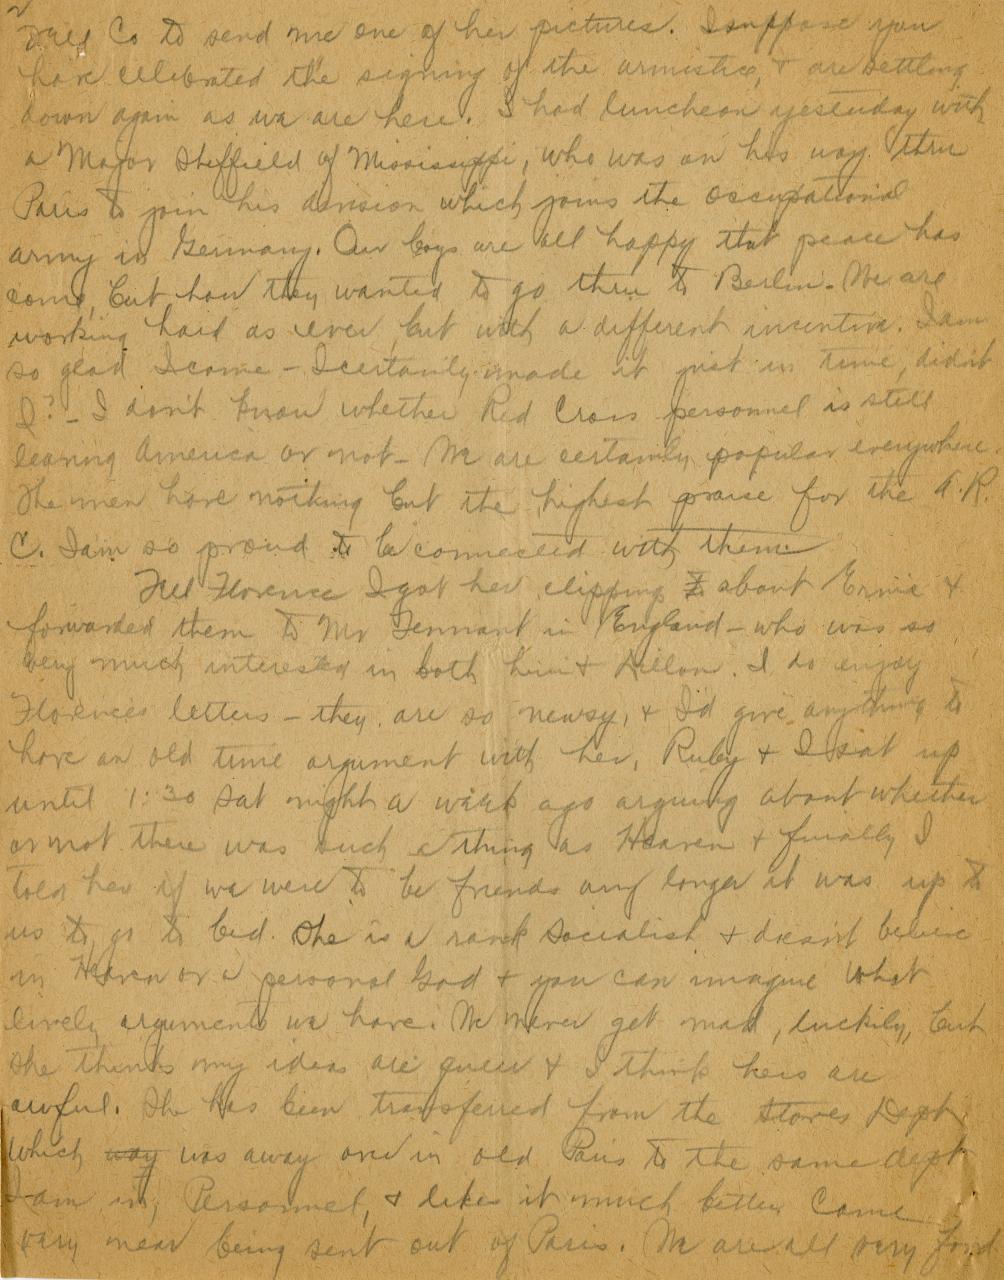 Tell Co to send me one of her pictures. I suppose you
have celebrated the signing of the armistice, + are settling
down again as we are here. I had luncheon yesterday with
a Major Sheffield of Mississippi, who was on his way thru
Paris to join his division which joins the occupational
army in Germany. Our boys are all happy that peace has
come, but how they wanted to go thru to Berlin. We are
working hard as ever, but with a different incentive. I am
so glad I came - I certainly made it just in time, didn't
I? - I don't know whether Red Cross personnel is still
leaving America or not - We are certainly popular everywhere.
The men have nothing but the highest praise for the A.R.
C. I am so proud to be connected with them
Tell Florence I got her clipping about Ernie +
forwarded them to Mr Tennant in England - who was so
very much interested in both him + Dillon. I do enjoy
Florence's letters - they are so newsy, + I'd give anything to
have an old time argument with her, Ruby + I sat up
until 1:30 Sat night a week ago arguing about whether
or not there was such a thing as Heaven + finally I
told her if we were to be friends any longer it was up to
us to go to bed. She is a rank Socialist + doesn't believe
in Heaven or a personal God + you can imagine what
lively arguments we have. We never get mad, luckily, but
she thinks my ideas are queer + I think hers are
awful. She has been transferred from the Stores Dept
which way was away over in old Paris to the same dept
I am in, Personnel, + likes it much better Came
very near being sent out of Paris. We are all very fond